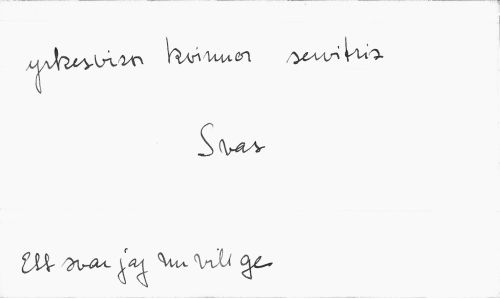 yrkesvisor kvinnor servitris
Svar
Ett svar jag nu vill ge